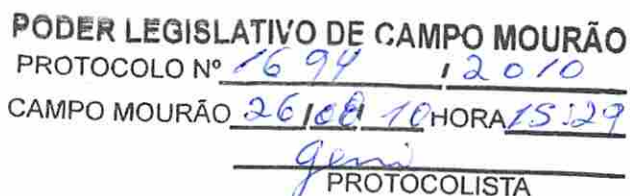 PODER LEGISLATIVO DE CAMPO MOURÃO
PROTOCOLO Nº 1694 / 2010
CAMPO MOURÃO 26/08/10 HORA 15:29
Geni
PROTOCOLISTA